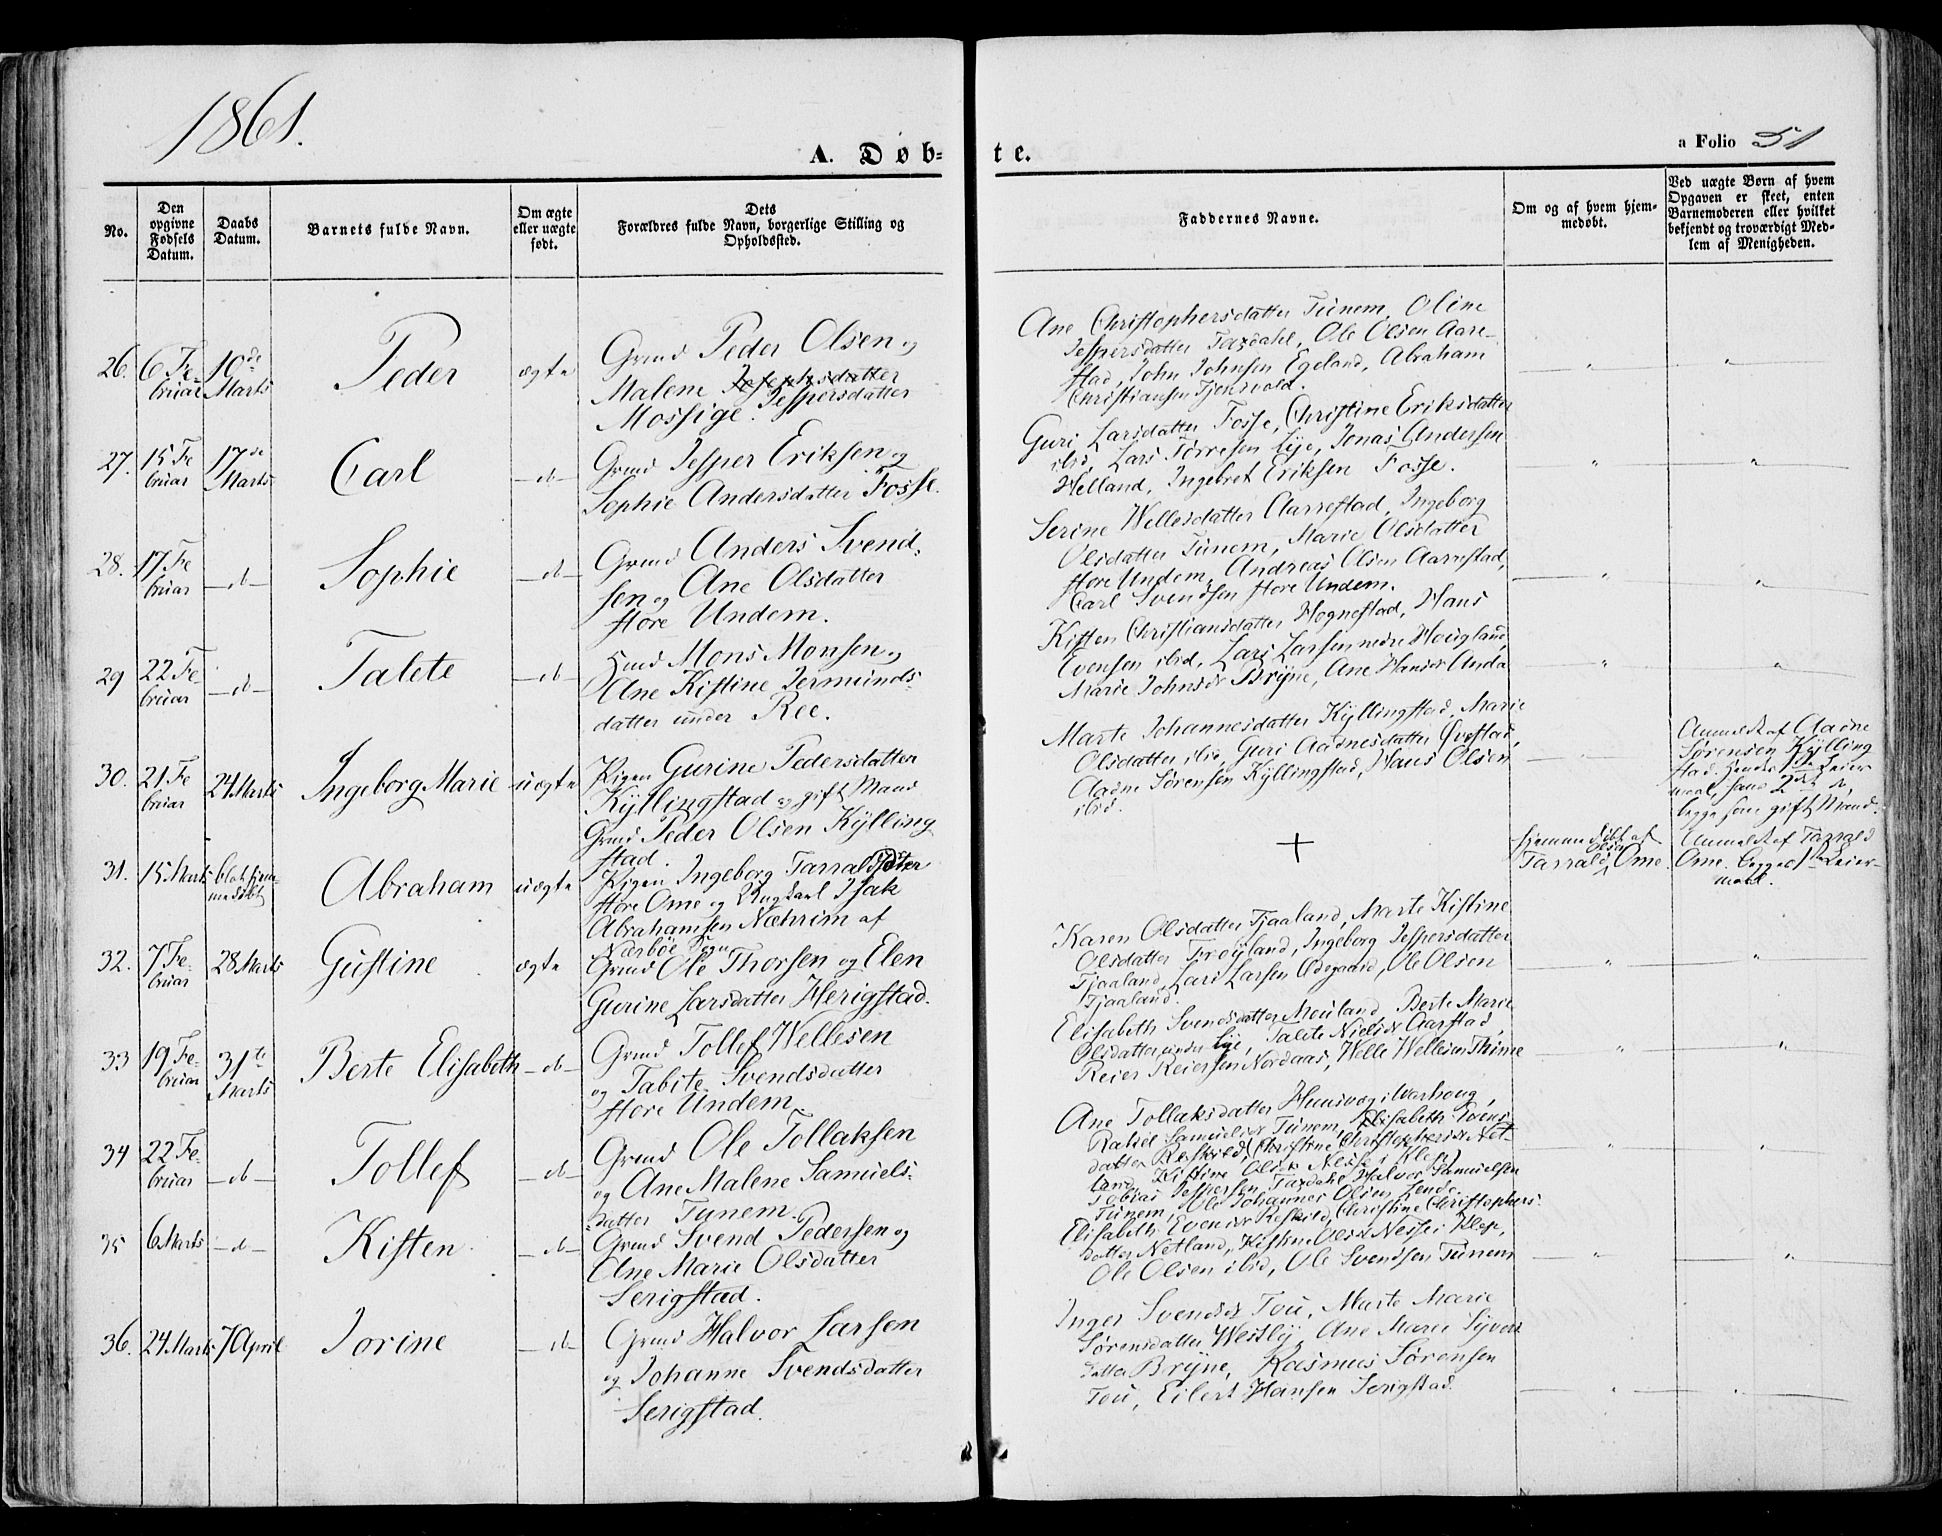 1861.
A. Døb-
te.
a Folio 51
No.
Den
opgivne
Fødsels
Datum.
Daabs
Datum.
Barnets fulde Navn.
Om ægte
eller uægte
født.
Dets
Forældres fulde Navn, borgerlige Stilling og
Opholdssted.
Faddernes Navne.
Om og af hvem hjem-
medøbt.
Ved uægte Børn af hvem
Opgaven er skeet, enten
Barnemoderen eller hvilket
bekjendt og troværdigt Med-
lem af Menigheden.
26.
6 Fe-
bruar
10de
Marts
Peder
ægte
Grmd Peder Olsen og
Malene Josephsdatter
Jespersdatter
Mossige.
Ane Christophersdatter Tunem, Oline
Jespersdatter Taxdahl, Ole Olsen Aare-
stad, John Johnsen Egeland, Abraham
Christiansen Tjensvold.
27.
15 Fe
bruar
17de
Marts
Carl
—d—
Grmd Jesper Eriksen og
Sophie Andersdatter Fosse.
Guri Larsdatter Fosse, Christine Eriksdatter
ibid, Lars Torresen Lye, Jonas Andersen
Helland, Ingebret Eriksen Fosse.
28.
17 Fe
bruar
—d—
Sophie
—d—
Grmd Anders Svend-
sen og Ane Olsdatter
store Undem.
Serine Wellesdatter Aarrestad, Ingeborg
Olsdatter Tunem, Marie Olsdatter
store Undem, Andreas Olsen Aarrestad,
Carl Svendsen store Undem.
29
22 Fe
bruar
—d—
Talete
—d—
Hmd Mons Monsen og
Ane Kistine Jermunds-
datter under Ree.
Kisten Christiansdatter Hognestad, Hans
Evensen ibid, Lars Larsen nedre Hougland,
Marie Johnsdr Bryne, Ane Hansdr Anda
30.
21 Fe
bruar
24 Marts
Ingeborg Marie
uægte
Pigen Gurine Pedersdatter
Kyllingstad og gift Mand
Grmd Peder Olsen Kylling
stad.
Marte Johannesdatter Kyllingstad, Marie
Olsdatter ibid, Guri Aadnesdatter Qvestad,
Aadne Sørensen Kyllingstad, Hans Olsen
ibid.
Anmeldt af Aadne
Sørensen Kylling
stad. Hendes 1ste Leier
maal, hans 2det do,
begge som gift Mand.
31.
15 Marts
blot hjem-
medøbt
Abraham
uægte
Pigen Ingeborg Tarraldsdtter
store Ome og Ungkarl Isak
Abrahamsen Næhrim af
Nærbøe Sogn
+
Hjemmedøbt af
Tarrald Olsen Ome
Anmeldt af Tarrald
Ome. Begges 1ste Leier-
maal.
32.
7 Fe-
bruar
28 Marts
Gustine
ægte
Grmd Ole Thorsen og Elen
Gurine Larsdatter Herigstad.
Karen Olsdatter Tjaaland, Marte Kistine
Olsdatter Frøyland, Ingeborg Jespersdatter
Tjaaland, Lars Larsen Ødegaard, Ole Olsen
Tjaaland.
33
19 Fe-
bruar
31te
Marts
Berte Elisabeth
—d—
Grmd Tollef Wellesen
og Tabite Svendsdatter
store Undem
Elisabeth Svendsdatter Mouland, Berte Marie
Olsdatter under Lye, Talete Nielsdr Aarstad,
Reier Reiersen Nordaas, Welle Wellesen Thime
34
22 Fe-
bruar
—d—
Tollef
—d—
Grmd Ole Tollaksen
og Ane Malene Samuels-
datter Tunem.
Ane Tollaksdatter Hunsvog i Warhoug,
Rakel Samuelsdr Tunem, (Elisabeth Evens
datter Reskild, Christine Christophersdr Net-
land, Kistine Olsdr Nesse i Klep)
Tobias Jespersen Taxdahl, Halvor Samuelsen
Tunem, Ole Johannes Olsen Lende.
35
6 Marts
—d—
Kisten
—d—
Grmd Svend Pedersen og
Ane Marie Olsdatter
Serigstad.
Elisabeth Evensdr Reskild, Christine Christophers-
datter Netland, Kistine Olsdr Nesse i Klep,
Ole Olsen ibid, Ole Svendsen Tunem
36.
24 Marts
7 April
Jorine
—d—
Grmd Halvor Larsen
og Johanne Svendsdatter
Serigstad.
Inger Svendsdr Tou, Marte Marie
Sørensdatter Westly, Ane Marie Syverts
datter Bryne, Rasmus Sørensen
Tou, Eilert Hansen Serigstad.